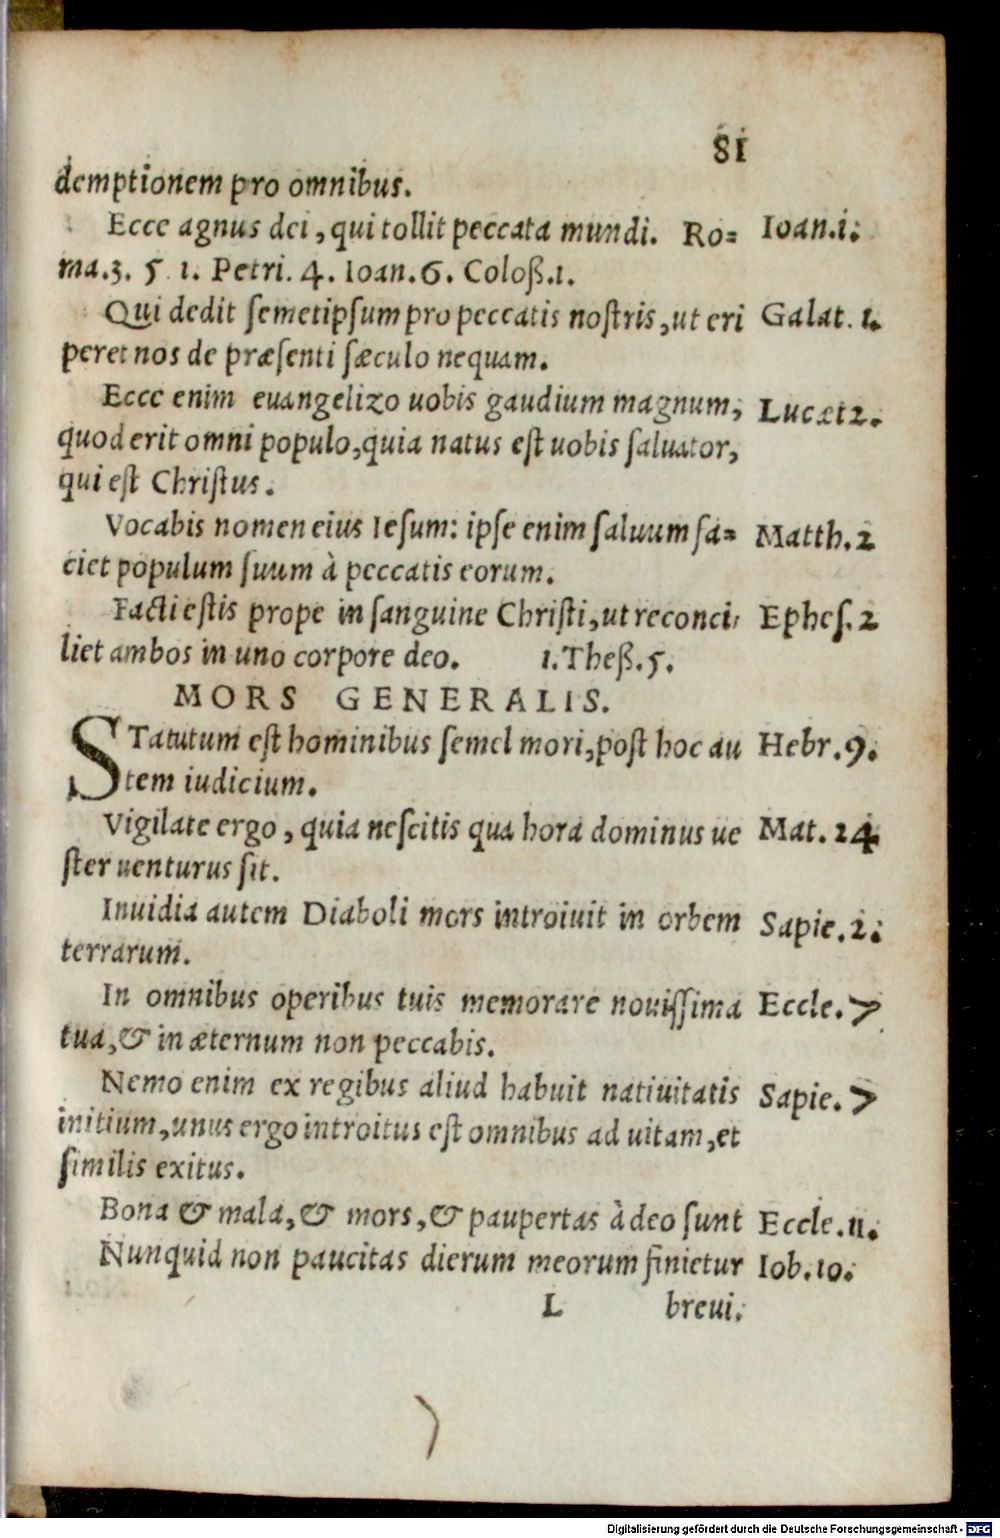 81
demptionem pro omnibus.
Ecce agnus dei, qui tollit peccata mundi. Ro= Ioan.1.
ma.3. 5 1. Petri. 4. Ioan. 6. Coloß.1.
Qui dedit semetipsum pro peccatis nostris, ut eri Galat. 1.
peret nos de præsenti sæculo nequam.
Ecce enim euangelizo uobis gaudium magnum, Lucæ 2.
quod erit omni populo, quia natus est uobis saluator,
qui est Christus.
Vocabis nomen eius Iesum: ipse enim saluum fa= Matth. 2
ciet populum suum à peccatis eorum.
Facti estis prope in sanguine Christi, ut reconci= Ephes. 2
liet ambos in uno corpore deo. 1. Theß. 5.
MORS GENERALIS.
STatutum est hominibus semel mori, post hoc au Hebr. 9.
tem iudicium.
Vigilate ergo, quia nescitis qua hora dominus ue Mat. 24
ster uenturus sit.
Inuidia autem Diaboli mors introiuit in orbem Sapie. 2.
terrarum.
In omnibus operibus tuis memorare nouissima Eccle. 7
tua, & in æternum non peccabis.
Nemo enim ex regibus aliud habuit natiuitatis Sapie. 7
initium, unus ergo introitus est omnibus ad uitam, et
similis exitus.
Bona & mala, & mors, & paupertas à deo sunt Eccle. 11.
Nunquid non paucitas dierum meorum finietur Iob. 10.
L breui.
Digitalisierung gefördert durch die Deutsche Forschungsgemeinschaft - DFG